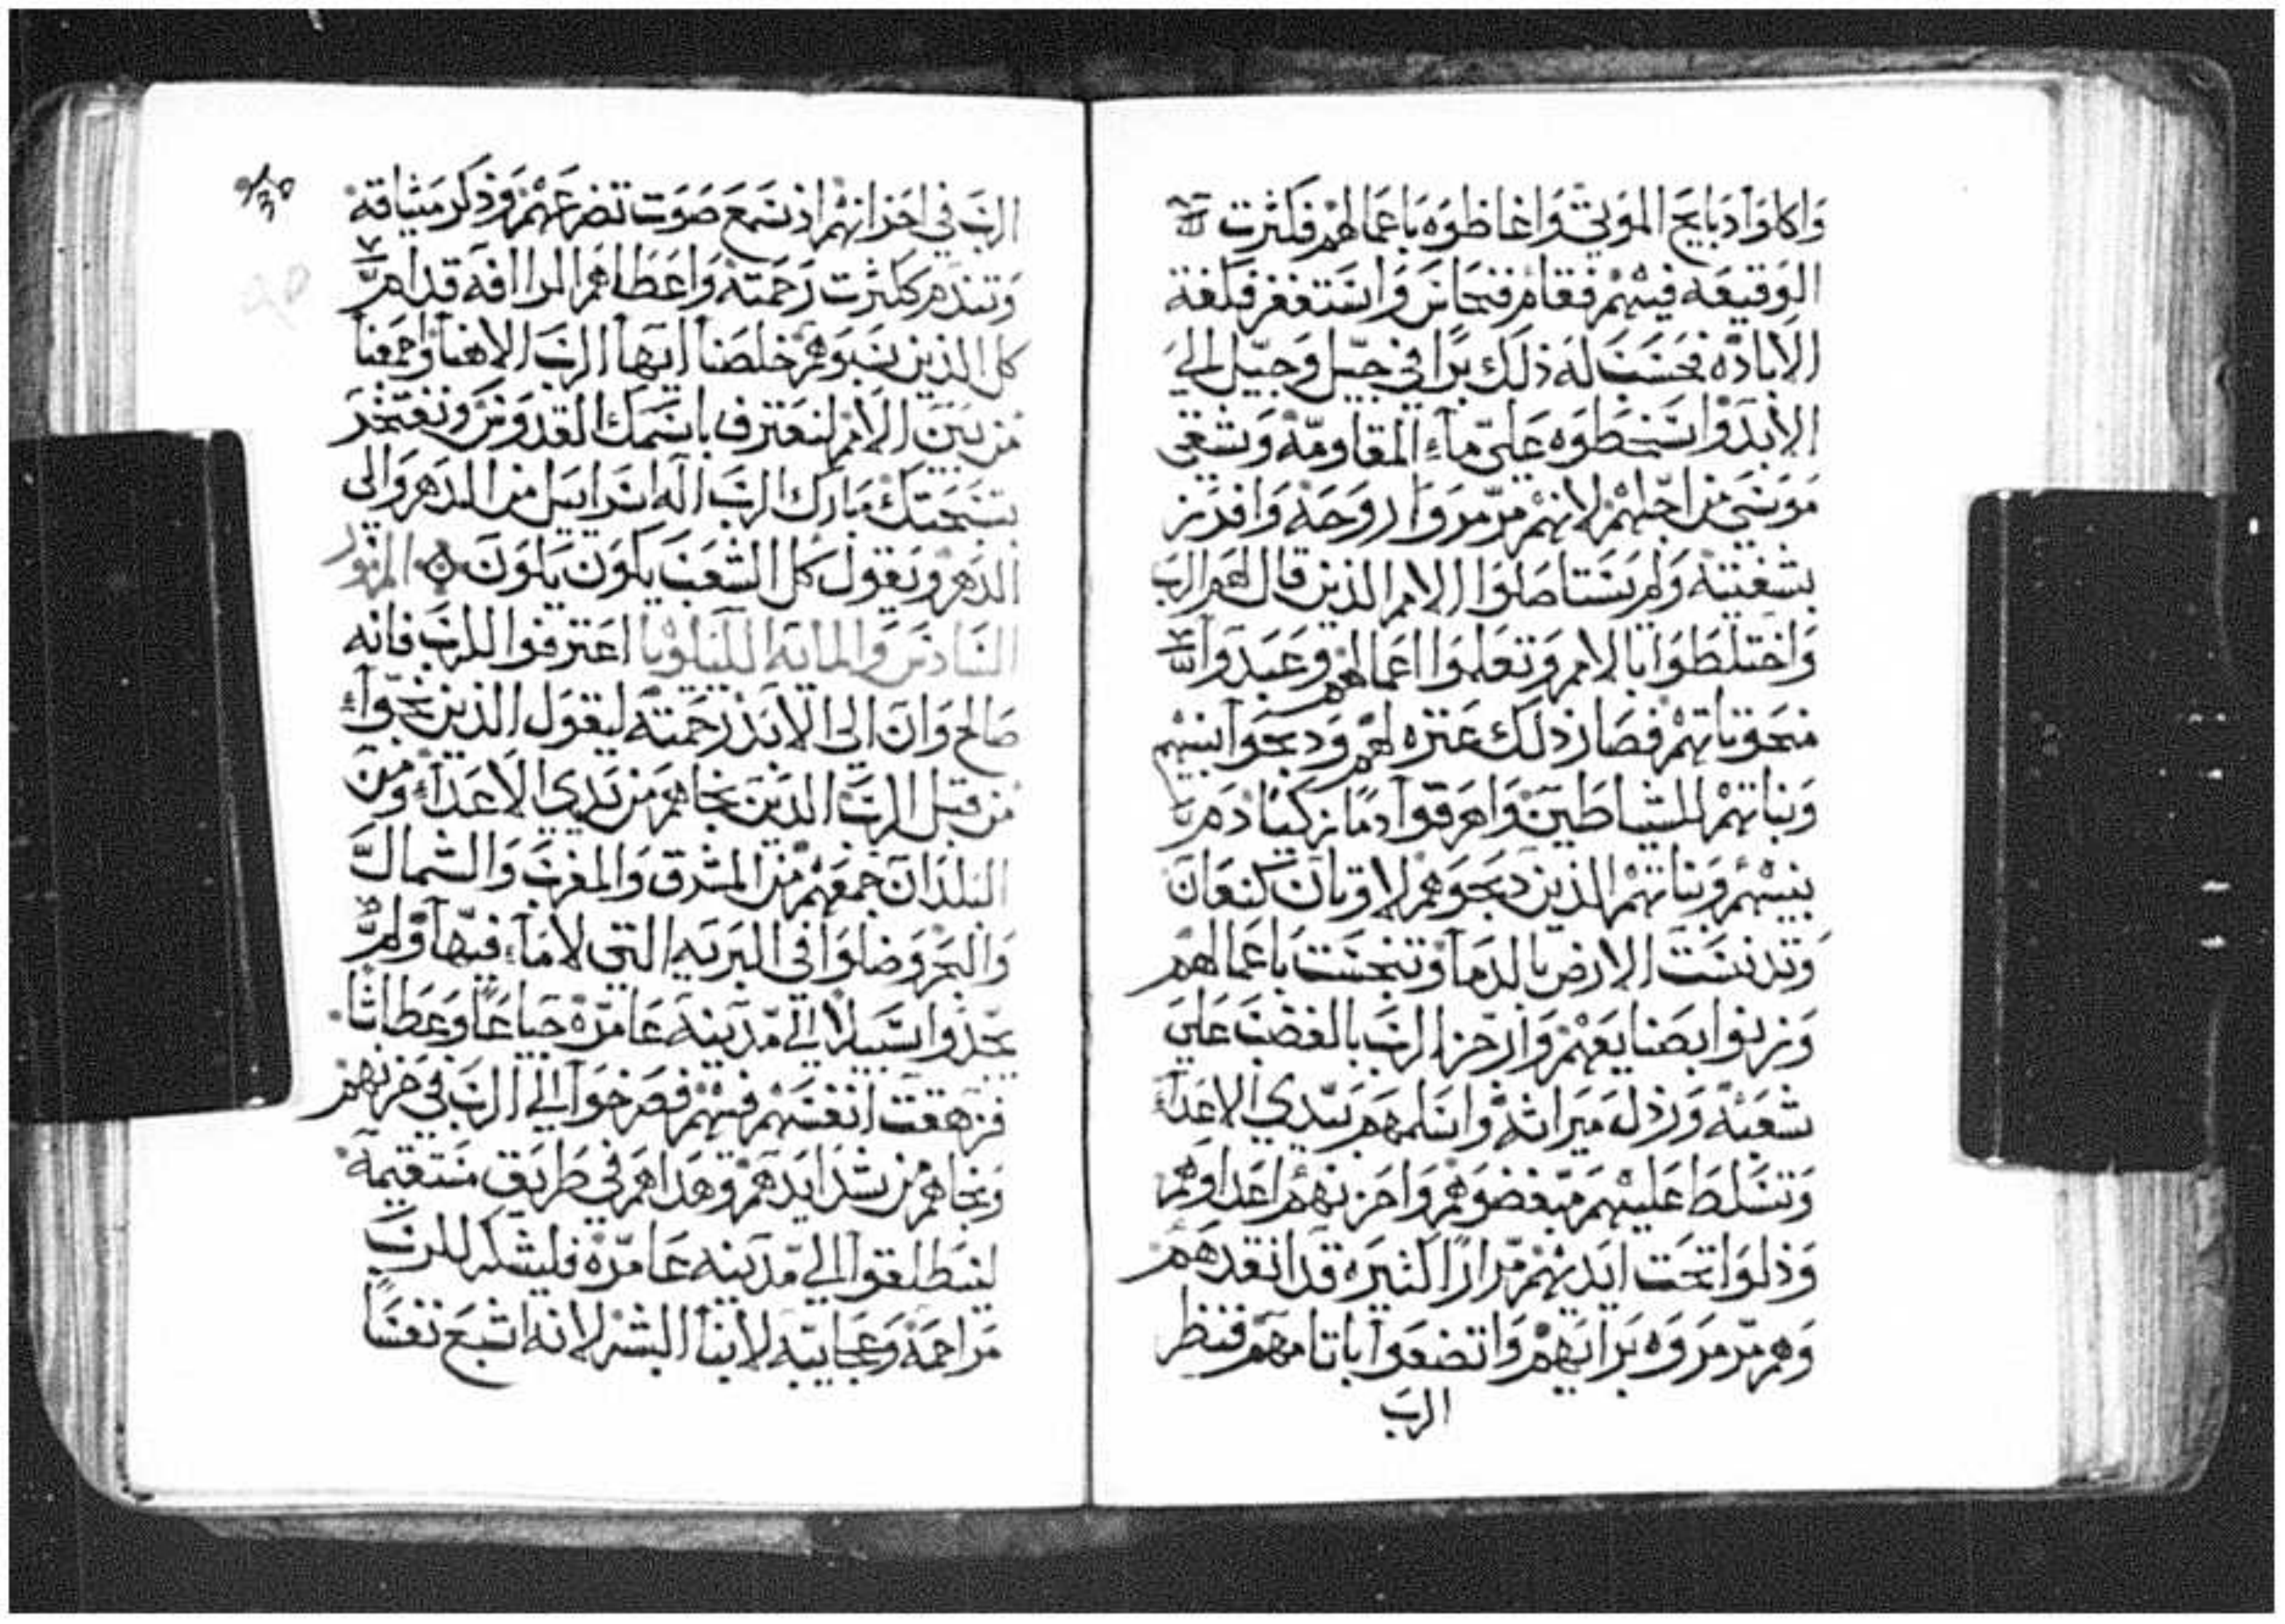 وَاكلوَا دبايح الموَتي وَاغاظوَه باعمالهم فكثرت
الوَقيعَة فيهم فقام فنحاس وَاستغفر فكفة
الاباده فحسَبَت لَه ذلك برًا في جيل وَجيل الي
الابد وَاسخطوَه علي مآء المقاومة وَشقي
موَسَي من اجلهم لانهم مرمروَا روَحه وَافرز
بشفتيه وَلم يستاصلوَا الامم الذين قال لهم الرب
وَاختلطوَا بالامم وَتعلموَا اعمالهم وعبدوا
منحوتاتهم فصار ذلك عثره لهم وَدبحوَا بنيهم
وَبناتهم للشياطين وَاهرقوَا دمًا زكيًا دم
بنيهم وَبناتهم الذين دبحوَهم لاوتان كنعَان
وَتدنسَت الارض بالدمآ وَتنجسَت باعمالهم
وَزنوا بصنايعهم وَارجز الرب بالغضب علي
شعَبه وَرذل ميراثه وَاسلمهم بيدي الاعدآء
وَتسَلط عَليهم مبغضوَهم وَاحزنهم اعداوَهم
وَذلوَا تحَت ايديهم مرارًا كثيره قد انقدهم
وَهم مرمروَه برايهم وَاتضعَوا باتامهم فنظر
الرب
الرَب في احزانهم اذ سَمع صَوَت تضرعَهم وَذكر ميثاقه
وَتندم كثرت رَحمته وَاعَطاهم الرافه قدام
كل الذين سَبوَهم خلصَنا ايها الرَب الاهنا وَاجمعنا
من بَين الامم لنعَترف باسَمك القدوَس وَنفتخر
بتسَبحتك مبارك الرَب اله اسَراييل من الدهر وَالى
الدهر وَيقول كل الشعَب يكوَن يكوَن المزمور
السَادسَ وَالمايه الليلويا اعترفوا للرَب فانه
صَالح وَان الي الابد رَحمته ليقول الذين نجوآ
من قبل الرَب الذين نجاهم من يدي الاعدآء ومن
البلدَان جمعَهم من المشرق وَالمغرب وَالشمال
وَالبحر وَضلوَا في البَريه التي لا مآء فيها وَلم
يجدوا سَبيلا الي مدينه عَامره جياعًا وَعَطاشا
فزهقت انفسهم فيهم فصرخوَا الي الرَب في حزنهم
وَنجاهم من شدايدهم وَهداهم في طريق مستقيمه
لينطلقوَا الي مدينه عَامره فليشكر للرَب
مراحمه وَعجايبه لابنآ البشر لانه اشبع نفسًا